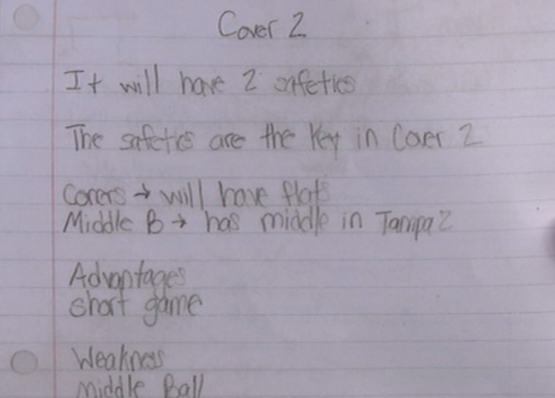 Cover 2
It will have 2 safeties
The safeties are the key in Cover 2
Coners → will have flats
Middle B → has middle in Tampa 2
Advantages
short game
Weakness
Middle Ball